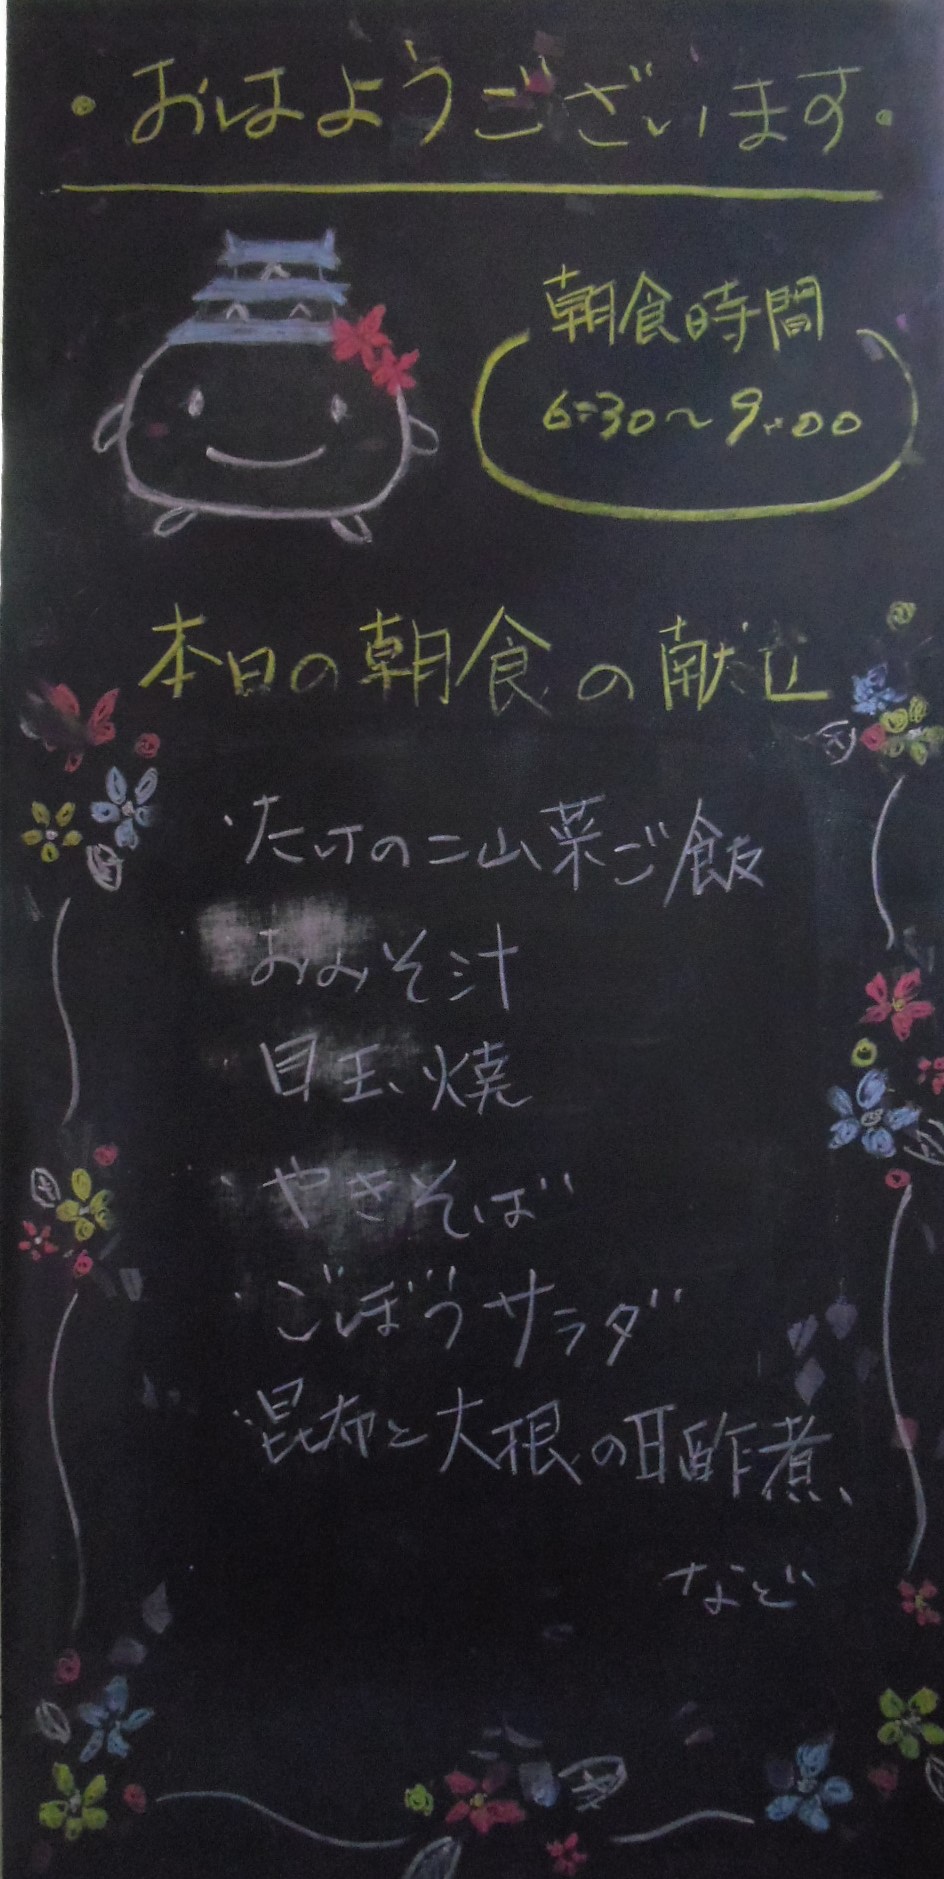 ・おはようございます・
朝食時間
6:30〜9:00
本日の朝食の献立
・たけのこ山菜ご飯
・おみそ汁
・目玉焼
・やきそば
・ごぼうサラダ
・昆布と大根の甘酢煮、
など